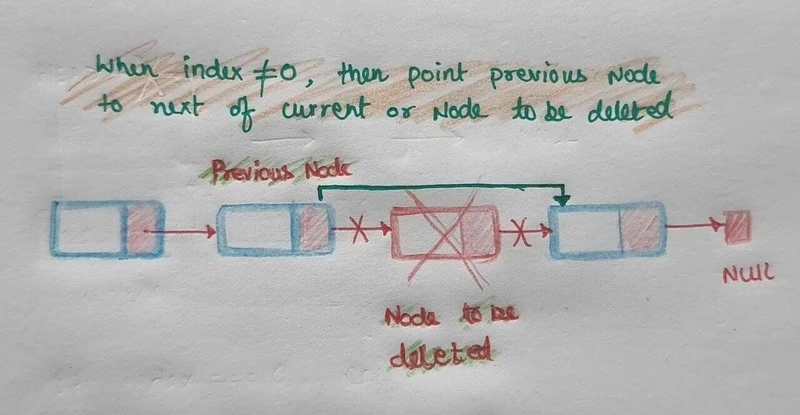 When index ≠0, then point previous Node
to next of current or Node to be deleted
Previous Node
Null
Node to be
deleted